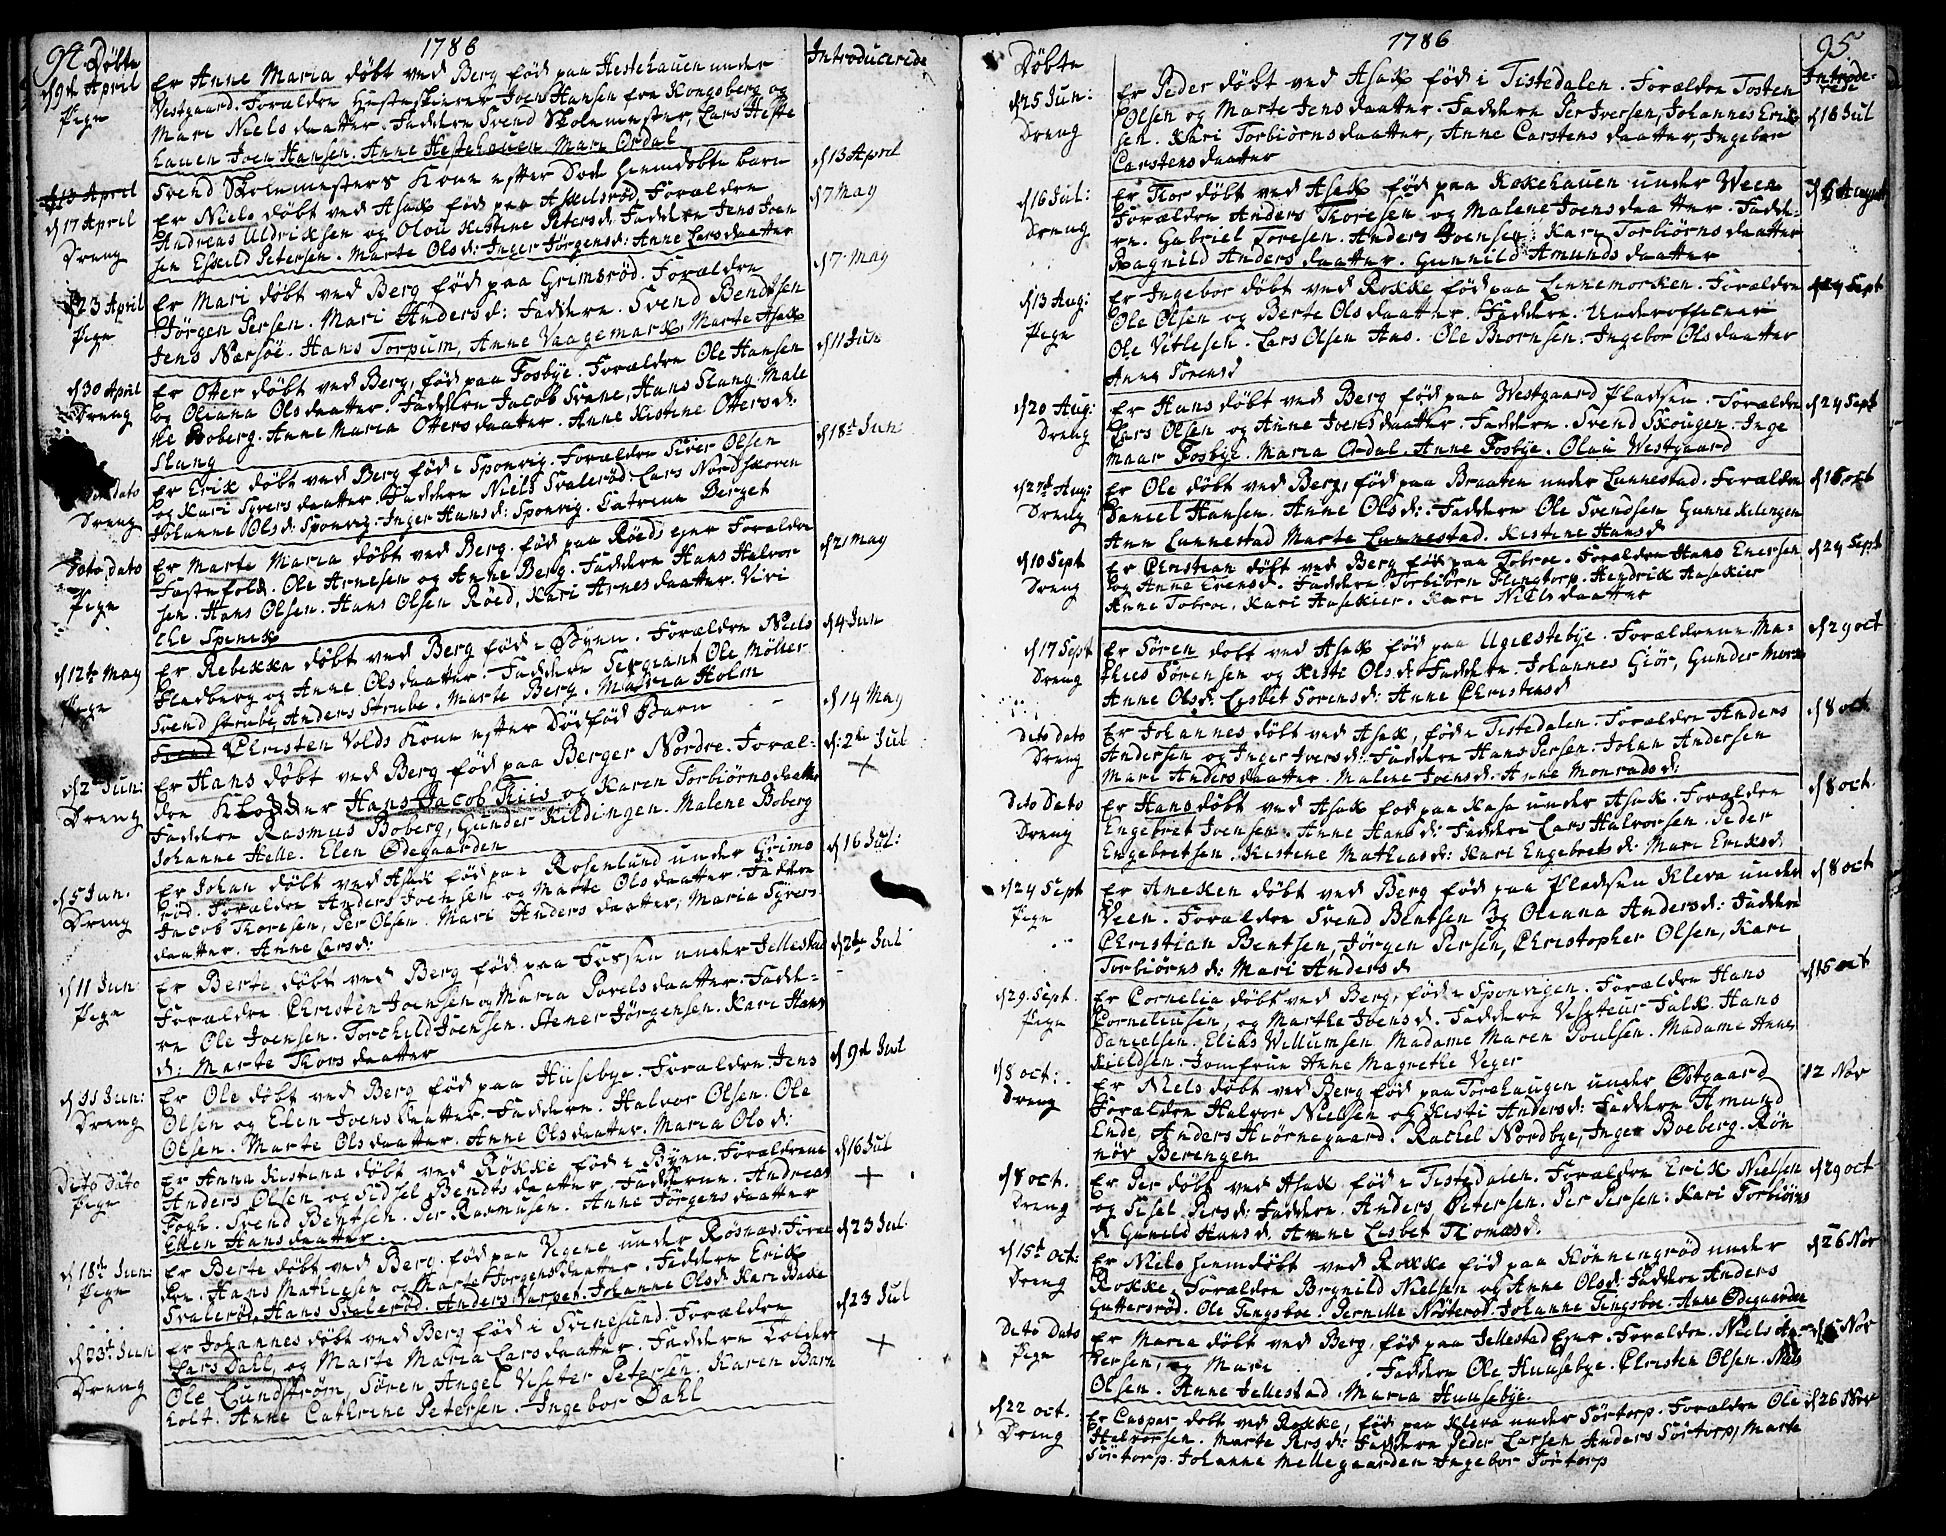 94. Döbte
1786
Introducerede
d 9de April
Pige
Er Anne Maria döbt ved Berg föd paa Hestehauen under
Vestgaard. Forældre Hesteskierer Joen Hansen fra Kongsberg og
Mari Niels daatter. Faddere Svend Skolemester, Lars Heste
hauen Joen Hansen. Anne Hestehauen Mari Ordal
d 13 April
Svend Skolemesters Kone efter Död hiemdöbte barn
d 13 April
d 17 April
Dreng
Er Niels döbt ved Asak föd paa Askilsröd Forældre
Andreas Uldriksen og Olau Kistine Petersd: Faddere Jens Joen
sen Eskild Petersen. Marte Olsd: Inger Jörgensd: Anne Lars daatter
d 7 May
d 23 April
Pige
Er Mari döbt ved Berg föd paa Grimsröd. Forældre
Jörgen Persen. Mari Andersd: Faddere. Svend Bendtsen
Jens Narsöe. Hans Torpum, Anne Vaagemark, Marte Asak
d 7 May
d 30 April
Dreng
Er Otter döbt ved Berg, föd paa Fosbye. Forældre Ole Hansen
og Oliana Olsdaatter. Faddere Jacob Svane, Hans Stang. Male
the Boberg. Anne Maria Otters daatter. Anne Kistine Ottersd:
Stang
d 11 Jun
Dito dato
Dreng
Er Erik döbt ved Berg föd i Sponvig. Forældre Siver Olsen
og Kari Syvers daatter Faddere Niels Svaleröd. Lars Nordskoven
Johanne Olsd: Sponvig. Inger Hansd: Sponvig. Catrine Berget
d 18de Jun
Dito Dato
Pige
Er Marte Maria döbt ved Berg. föd paa Röeds ejer Forældre
Fastefold. Ole Arnesen og Anne Berg. Faddere Hans Halvor
sen. Hans Olsen. Hans Olsen Röed, Kari Arnes daatter. Vivi
che Spenik
d 21 May
d 12te May
Pige
Er Rebekka döbt ved Berg föd i Byen. Forældre Niels
Fladberg og Anne Olsdaatter. Faddere Sergeant Ole Möller
Svend Strube, Anders Strube. Marte Berg. Maria Holm
d 4 Jun
Christen Volds Kone efter Dödföd Barn
d 14 May
d 2de Jun:
Dreng
Er Hans döbt ved Berg föd paa Berger Nordre. Foræl-
dre Klokker Hans Jacob Riis og Karen Torbiörnsdaatter
Faddere Rasmus Boberg, Gunder Kildingen. Malene Boberg
Johanne Helle. Elen Ödegaarden
d: 2de Jul
+
d 5 Jun.
Dreng
Er Johan döbt ved Asak föd paa Rosenlund under Grims
röd. Forældre Anders Joensen og Marte Olsdaatter. Faddere
Jacob Thoresen, Per Olsen. Mari Anders daatter, Maria Syvers
daatter. Anne Larsd:
d 16 Jul:
d 11 Jun:
Pige
Er Berte döbt ved Berg föd paa Fossen under Jellestad
Forældre Christen Joensen og Maria Povels daatter. Fadde-
re Ole Joensen. Torchild Joensen. Stener Jörgensen. Kari Hans
d: Marte Thors daatter
d 2de Jul
d 11 Jun:
Dreng
Er Ole döbt ved Berg föd paa Huusebye. Forældre Jens
Olsen og Elen Joens daatter. Faddere. Halvor Olsen. Ole
Olsen. Marte Olsdaatter. Anne Olsdaatter. Maria Olsd:
d 9de Jul
Dito Dato
Pige
Er Anna Kistina döbt ved Rökke föd i Byen. Forældrene
Anders Olsen og Sidsel Bendtsdaatter. Fadderne. Andreas
Fogh. Svend Bentsen. Per Rasmusen. Anne Jörgensdaatter
Ellen Hansdaatter.
d 16 Jul
+
d 18de Jun:
Pige
Er Berte döbt ved Berg. föd paa Vegene under Rösnæs. Foræl
dre. Hans Mathiesen og Marte Jorgensdaatter. Faddere Erik
Svaleröd, Hans Svaleröd. Anders Narpen. Johanne Olsd: Kari Bake
d 23 Jul
d 23de Jun
Dreng
Er Johannes döbt ved Berg föd i Svinesund. Forældre
Lars Dahl, og Marte Maria Larsdaatter. Faddere Tolder
Ole Lundström, Sören Angel Visiter Petersen. Karen Barn
holt. Anne Cathrine Petersen. Ingebor Dahl
d 23 Jul
+
Döbte
1786
95
Introde-
rede
d 25 Jun:
Dreng
Er Peder döbt ved Asak föd i Tistedalen. Forældre Tosten
Olsen og Marte Jensdaatter. Faddere Per Iversen, Johannes Erik
sen. Kari Torbiörnsdaatter, Anne Carstens daatter, Ingebor
Carstensdaatter
d 16 Jul
d 16 Jul:
Dreng
Er Thor döbt ved Asak föd paa Kokehauen under Ween
Forældre Anders Thoresen og Malene Joensdaatter. Fadde-
re. Gabriel Toresen. Anders Joensen. Kari Torbiörnsdaatter
Ragnild Anders daatter. Gunnild Amunds daatter
d 6 August
d 13 Aug:
Pige
Er Ingebor döbt ved Rokke föd paa Linnemorken. Forældre
Ole Olsen og Berte Olsdaatter. Faddere. Underofficeer
Ole Vetlesen. Lars Olsen Aas. Ole Biornsen. Ingebor Olsdaatter
Anne Sörensd
d 24 Sept
d 20 Aug:
Dreng
Er Hans döbt ved Berg föd paa Westgaard Pladsen. Forældre
Lars Olsen og Anne Joensdaatter. Faddere. Svend Skougen. Inge
maar Fosbye. Maria Ordal. Anne Fosbye. Olau Westgaard
d 24 Sept
d 27de Aug:
Dreng
Er Ole döbt ved Berg, föd paa Braaten under Lunnestad. Forældre
Daniel Hansen. Anne Olsd: Faddere Ole Svendsen Gunne Kilengen
Ann Lunnestad Marte Lunnestad. Kistine Hansd
d 16 oct
d 10 Sept
Dreng
Er Christian döbt ved Berg föd paa Tobroe. Forældre Hans Enersen
og Anne Evensd. Faddere Torbiörn Flingtorp. Hendrik Aasekier
Anne Tobroe, Kari Aasekier. Kari Nielsdaatter
d 24 Sept
d 17 Sept
Dreng
Er Sören döbt ved Asak föd paa Ugulstebye. Forældrene Ma-
thies Sörensen og Kisti Olsd: Faddere. Johannes Giör, Gunder Moen
Anne Olsd: Lisbet Sorensd: Anne Christensd
d 29 oct
Dito Dato
Dreng
Er Johannes döbt ved Asak, föd i Tistedalen. Forældre Anders
Andersen og Inger Iversd: Faddere Hans Persen. Johan Andersen
Mari Andersdaatter. Malene Joensd. Anne Monradsd:
d 8 oct
Dito Dato
Dreng
Er Hans döbt ved Asak föd paa Kasa under Asak. Forældre
Engebret Joensen. Anne Hansd: Faddere Lars Halvorsen. Peder
Engebretsen. Kistene Mathiasd: Kari Engebretsd: Mari Eriksd
d 8 oct.
d 24 Sept
Pige
Er Aneken döbt ved Berg föd paa Pladsen Kleva under
Veen. Forældre Svend Bentsen og Oliana Andersd: Faddere
Christian Bentsen, Jörgen Persen, Christopher Olsen, Kari
Torbiörnsd: Mari Andersd
d 8 oct
d 29. Sept.
Pige
Er Cornelia döbt ved Berg, föd i Sponvigen. Forældre Hans
Corneliusen, og Marthe Joensd. Faddere Visiteur Falk. Hans
Danielsen. Elias Willumsen Madame Maren Poulsen. Madame Anne
Kieldsen. Jomfrue Anne Magrethe Veger
d 15 oct
d 8 oct:
Dreng
Er Niels döbt ved Berg föd paa Torehaugen under Östgaard
Forældre Halvor Nielsen og Kisti Andersd: Faddere Amund
Ende, Anders Hiörnegaard. Rachel Nordbye, Inger Boeberg. Rön
növ Berengen
12 Nov
d 8 oct.
Dreng
Er Per döbt ved Asak föd i Tistedalen. Forældre Erik Nielsen
og Sisel Persd: Faddere. Anders Petersen. Per Persen: Kari Torbiörns
d Gunild Hansd, Anne Lisbet Thomasd.
d 29 oct
d 15de oct:
Dreng
Er Niels hiemdöbt ved Rokke föd paa Könnengröd under
Rokke. Forældre Brynild Nielsen og Anne Olsd: Faddere Anders
Guttersröd. Ole Tingsboe. Pernille Nösteröd. Johanne Tingsboe. Anne Ödegaarden
d 26 Nov
Dito Dato
Pige
Er Maria döbt ved Berg. föd paa Jellestad Ejer. Forældre. Niels An-
dersen, og Mari . Faddere Ole Huusebye. Christen Olsen. Niels
Olsen. Anne Jellestad. Maria Huusebye.
Nov
d 22 oct.
Dreng
Er Caspar döbt ved Rokke, föd paa Kleva under Sörtorp. Forældre Ole
Halvorsen. Marte Persd: Faddere Peder Larsen Anders Sörtorp, Marte
Sörtorp. Johanne Mellegaarden Ingebor Sörtorp
d 26 Nov